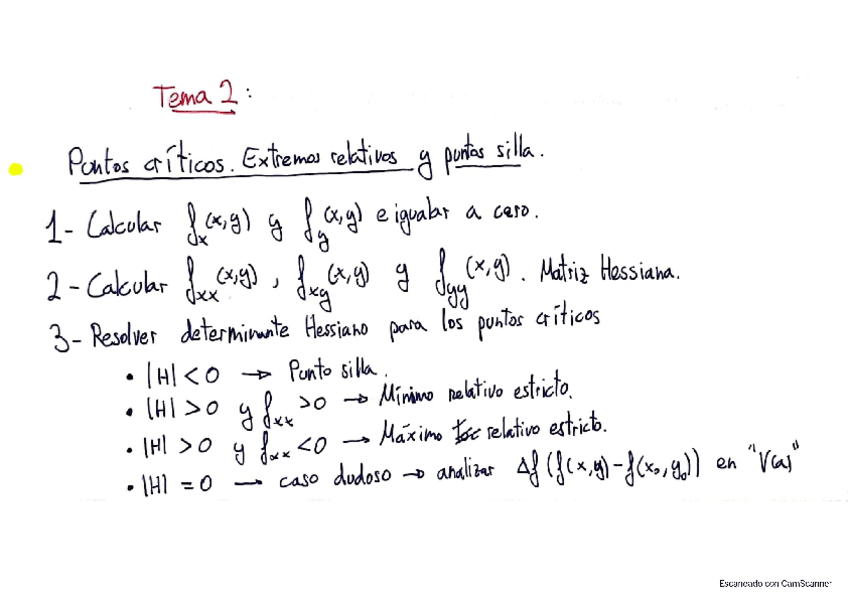 Tema 2:
Puntos críticos. Extremos relativos y puntos silla.
1- Calcular fx(x,y) y fy(x,y) e igualar a cero.
2- Calcular fxx(x,y), fxy(x,y) y fyy(x,y). Matriz Hessiana.
3- Resolver determinante Hessiano para los puntos críticos
• |H| < 0 → Punto silla.
• |H| > 0 y fxx > 0 → Mínimo relativo estricto.
• |H| > 0 y fxx < 0 → Máximo relativo estricto.
• |H| = 0 → caso dudoso → analizar Δf (f(x,y)-f(x₀,y₀)) en "V(a)"
Escaneado con CamScanner